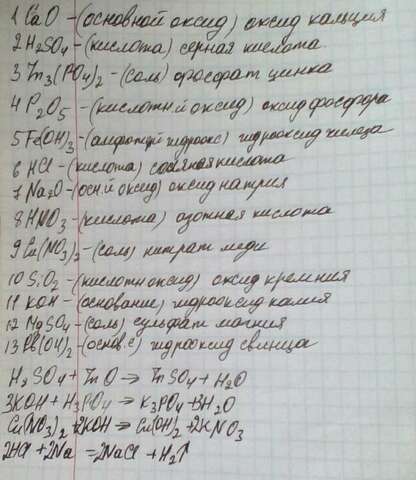 1 CaO - (основной оксид) оксид кальция
2 H₂SO₄ - (кислота) серная кислота
3 Zn₃(PO₄)₂ - (соль) фосфат цинка
4 P₂O₅ - (кислотн.й оксид) оксид фосфора
5 Fe(OH)₃ - (амфотерн гидрокс) гидрооксид
6 HCl - (кислота) соляная кислота
7 Na₂O - (осн.й оксид) оксид натрия
8 HNO₃ - (кислота) азотная кислота
9 Cu(NO₃)₂ - (соль) нитрат меди
10 SiO₂ - (кислотн оксид) оксид кремния
11 KOH - (основание) гидрооксид калия
12 MgSO₄ - (соль) сульфат магния
13 Pb(OH)₂ - (основ.е) гидрооксид свинца
H₂SO₄ + ZnO → ZnSO₄ + H₂O
3KOH + H₃PO₄ → K₃PO₄ + 3H₂O
Cu(NO₃)₂ + 2KOH → Cu(OH)₂ + 2KNO₃
2HCl + 2Na = 2NaCl + H₂↑